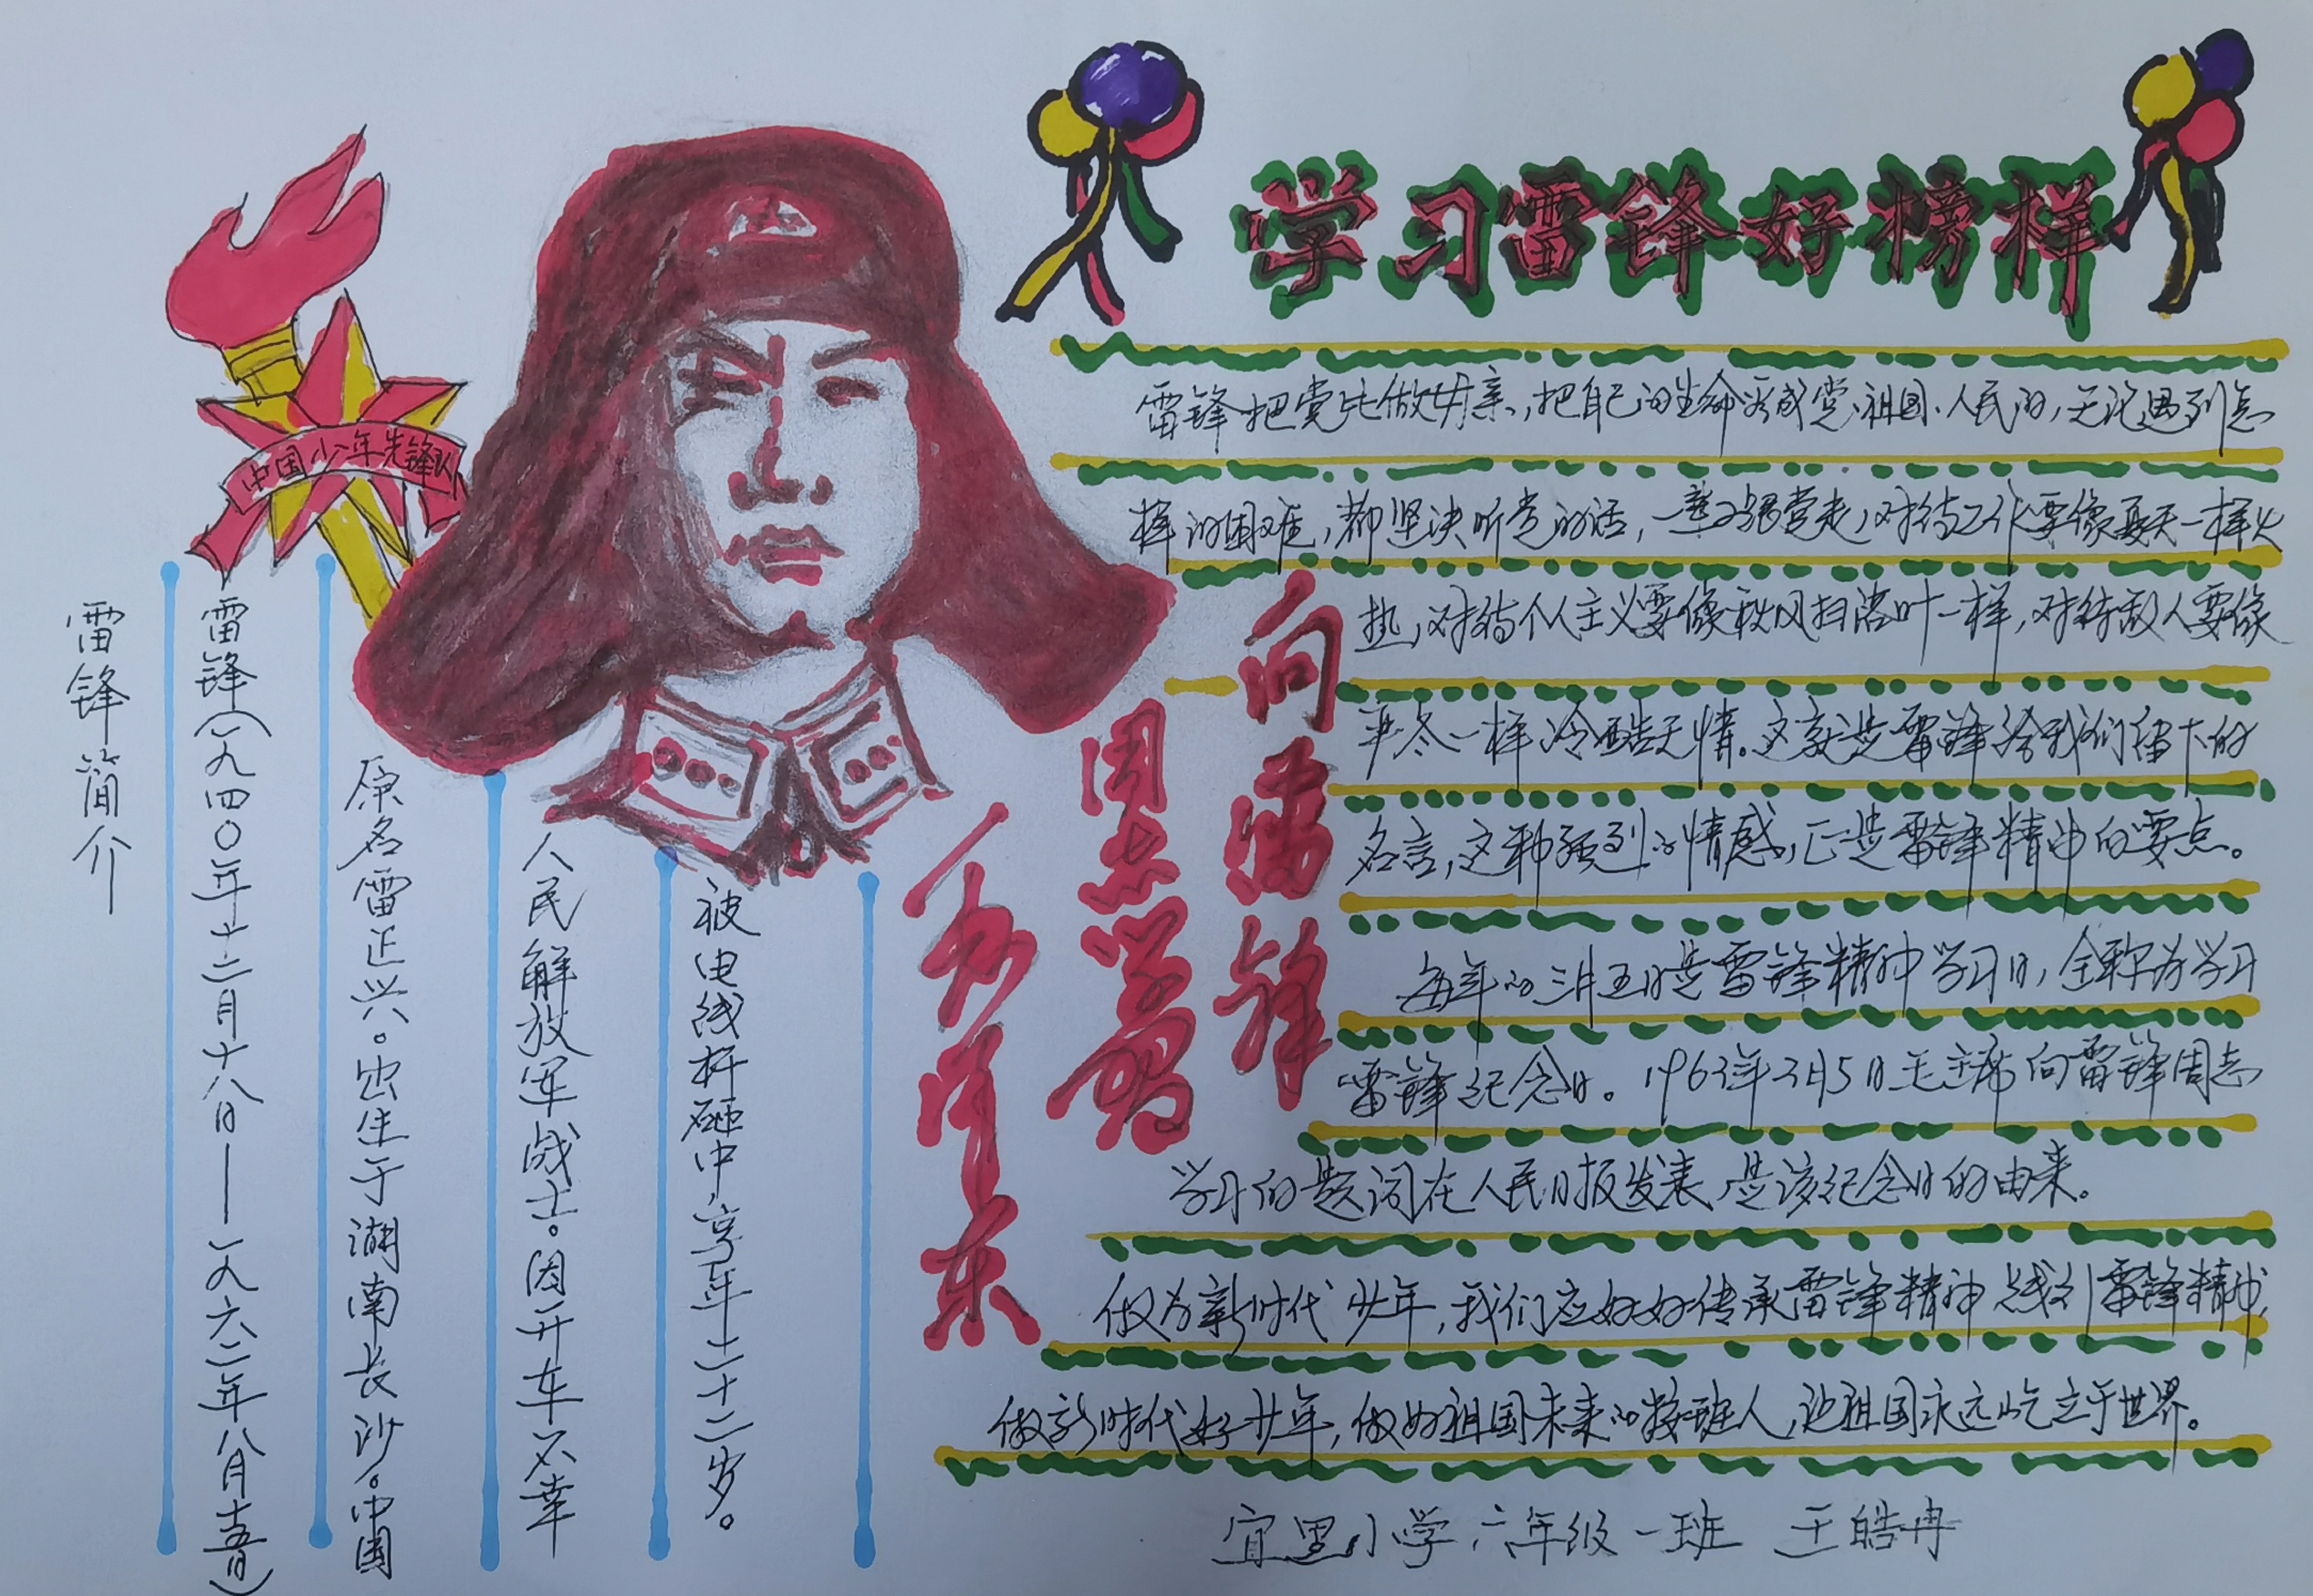 学习雷锋好榜样
中国少年先锋队
雷锋简介
雷锋(一九四〇年十二月十八日——一九六二年八月十五日)
原名雷正兴。出生于湖南长沙。中国
人民解放军战士。因开车不幸
被电线杆砸中,享年二十二岁。
向雷锋
同志学习
毛泽东
雷锋把党比做母亲,把自己的生命看成党、祖国、人民的,无论遇到怎
样的困难,都坚决听党的话,一辈子跟党走,对待工作要像夏天一样火
热,对待个人主义要像秋风扫落叶一样,对待敌人要像
严冬一样冷酷无情。这就是雷锋给我们留下的
名言,这种强烈的情感,正是雷锋精神的要点。
每年的三月五日是雷锋精神学习日,全称为学习
雷锋纪念日。1963年3月5日毛主席向雷锋同志
学习的题词在人民日报发表,是该纪念日的由来。
做为新时代少年,我们应好好传承雷锋精神 雷锋精神,
做新时代好少年,做好祖国未来的接班人,让祖国永远屹立于世界。
宜里小学 六年级一班 王皓冉